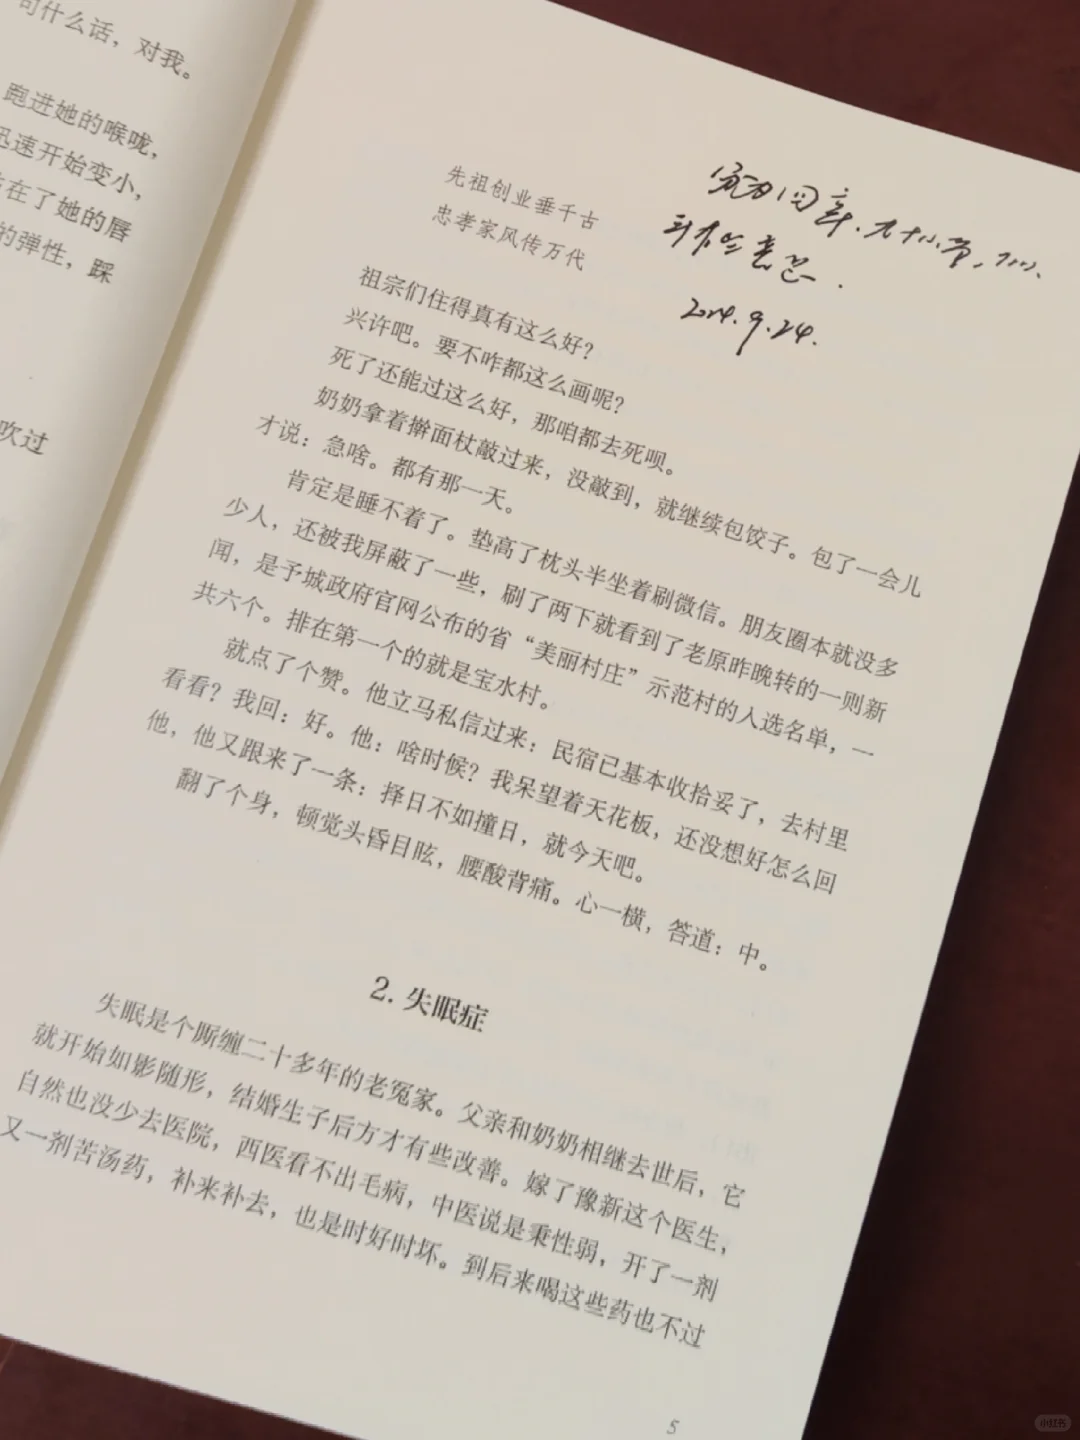 句什么话，对我。
跑进她的喉咙，
迅速开始变小，
在了她的唇
的弹性，踩
吹过
先祖创业垂千古
忠孝家风传万代
2024.9.24.
祖宗们住得真有这么好？
兴许吧。要不咋都这么画呢？
死了还能过这么好，那咱都去死呗。
奶奶拿着擀面杖敲过来，没敲到，就继续包饺子。包了一会儿
才说：急啥。都有那一天。
肯定是睡不着了。垫高了枕头半坐着刷微信。朋友圈本就没多
少人，还被我屏蔽了一些，刷了两下就看到了老原昨晚转的一则新
闻，是予城政府官网公布的省“美丽村庄”示范村的入选名单，一
共六个。排在第一个的就是宝水村。
就点了个赞。他立马私信过来：民宿已基本收拾妥了，去村里
看看？我回：好。他：啥时候？我呆望着天花板，还没想好怎么回
他，他又跟来了一条：择日不如撞日，就今天吧。
翻了个身，顿觉头昏目眩，腰酸背痛。心一横，答道：中。
2. 失眠症
失眠是个厮缠二十多年的老冤家。父亲和奶奶相继去世后，它
就开始如影随形，结婚生子后方才有些改善。嫁了豫新这个医生，
自然也没少去医院，西医看不出毛病，中医说是秉性弱，开了一剂
又一剂苦汤药，补来补去，也是时好时坏。到后来喝这些药也不过
5
小红书